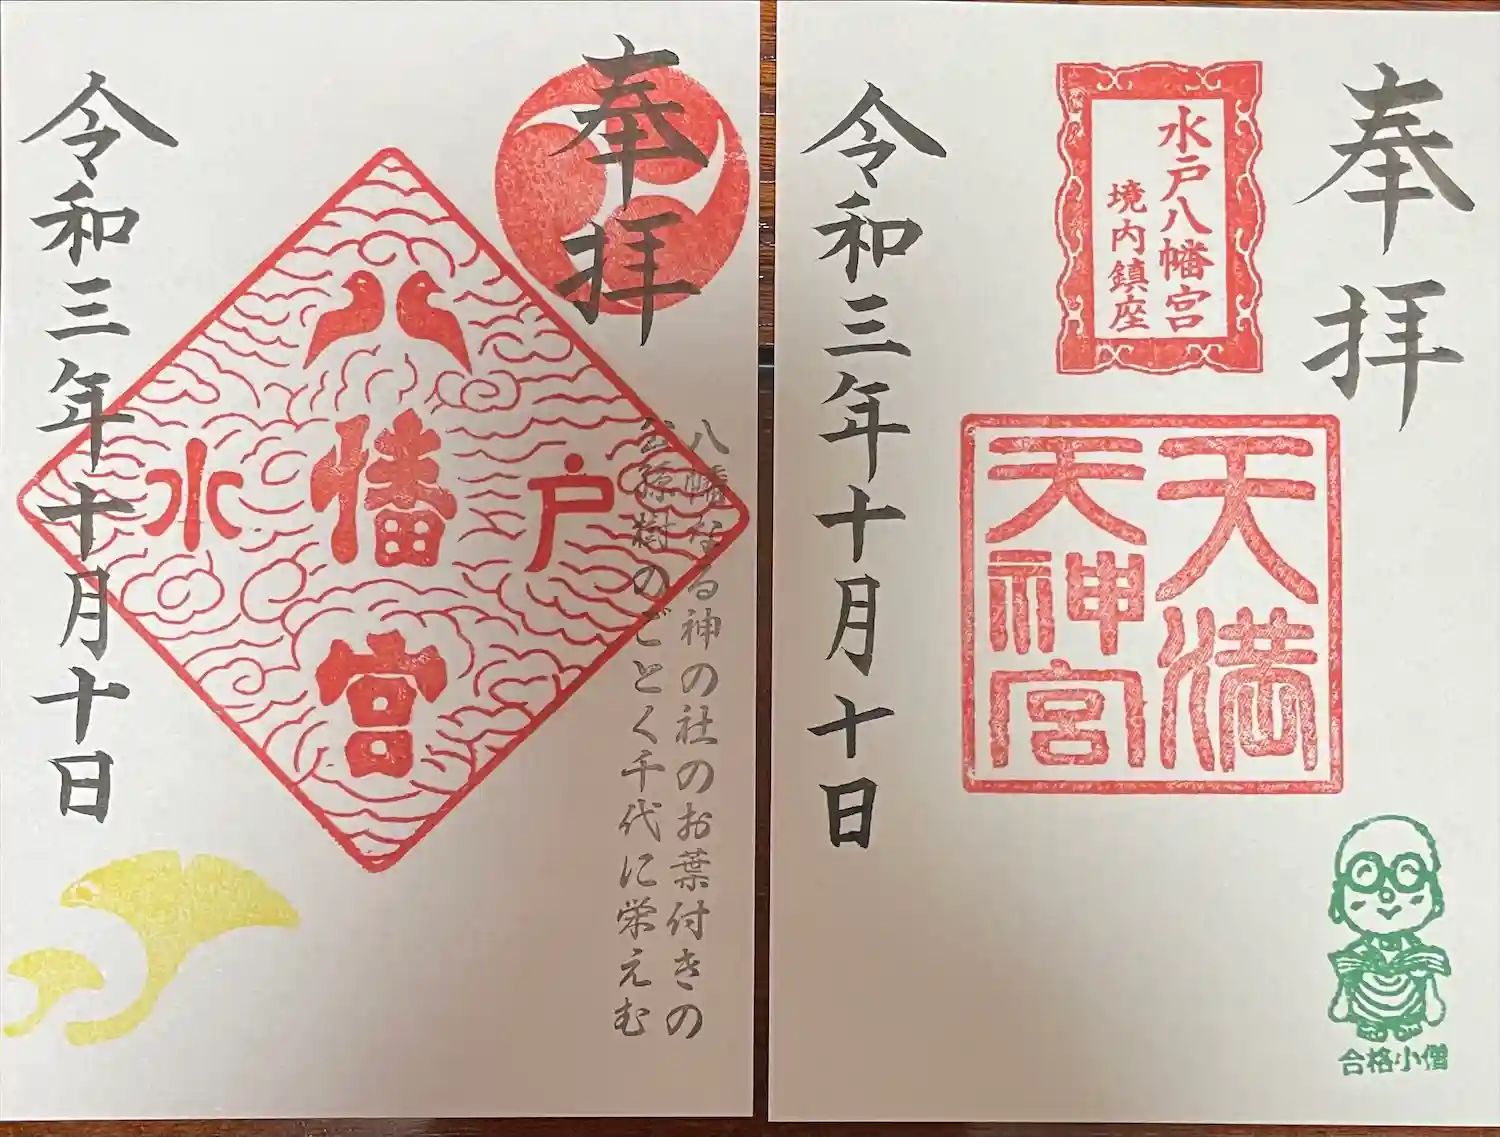 奉拝
八幡なる神の社のお葉付きの
公孫樹のごとく千代に栄えむ
水戸
八幡宮
令和三年十月十日
奉拝
水戸八幡宮
境内鎮座
天満
天神宮
合格小僧
令和三年十月十日